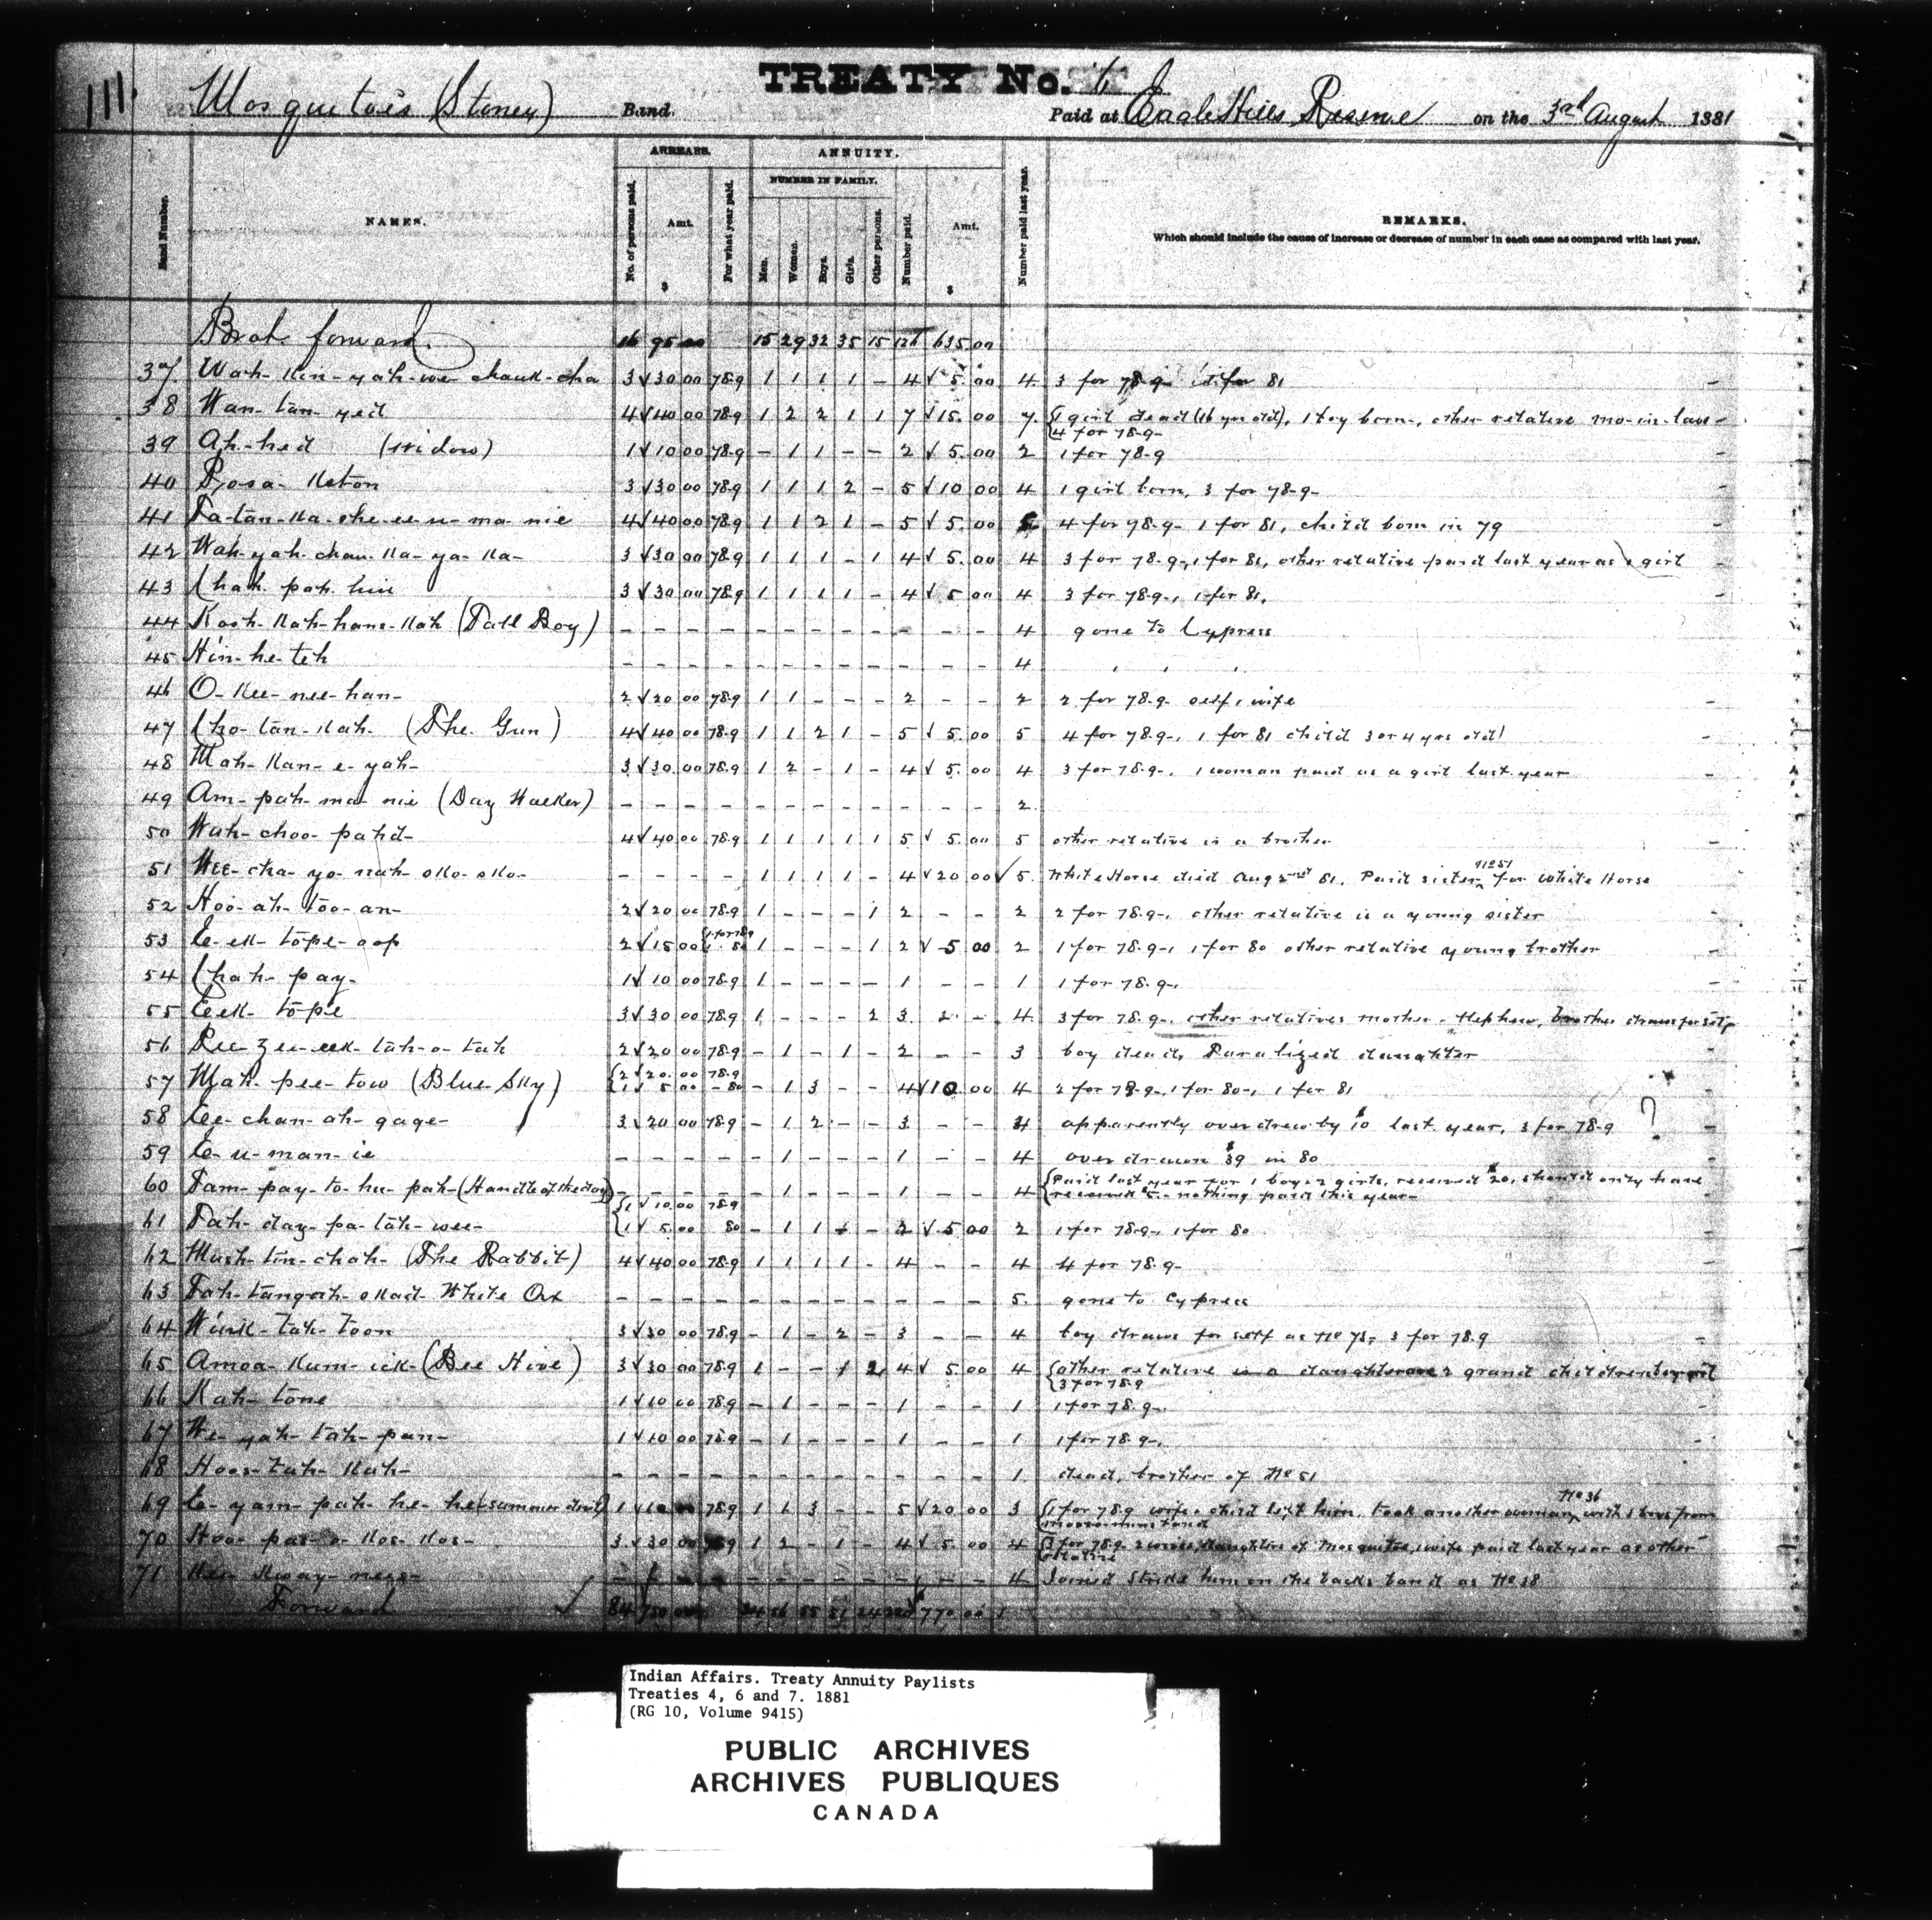 111.
TREATY No. 6
Mosquitoe's (Stoney) Band. Paid at Eagle Hills Reserve on the 3rd August 1881
ARREARS. ANNUITY.
NUMBER IN FAMILY.
Band Number. NAMES. No. of persons paid. Amt. $ For what year paid. Men. Women. Boys. Girls. Other persons. Number paid. Amt. $ Number paid last year. REMARKS.
Which should include the cause of increase or decrease of number in each case as compared with last year.
forward. 16 95 00 15 29 32 35 15 126 635 00
37 Wah-Kin-yah-we-chauk-cha 3 √ 30 00 78-9 1 1 1 1 - 4 √ 5. 00 4 3 for 78-9- for 81
38 Wan-tan-yed 4 √ 40 00 78-9 1 2 2 1 1 7 √ 15. 00 7. {1 girl dead (16 yrs old), 1 boy born, other relative mo-in-law -
{4 for 78-9-
39 Ah-hed (widow) 1 √ 10 00 78-9 - 1 1 - - 2 √ 5. 00 2 1 for 78-9
40 3 √ 30 00 78-9 1 1 1 2 - 5 √ 10 00 4 1 girl born, 3 for 78-9-
41 Ta-tan-Ka-she-ee-u-ma-nie 4 √ 40 00 78-9 1 1 2 1 - 5 √ 5. 00 4 for 78-9- 1 for 81, child born in 79
42 Wah-yah-chau-Ka-ya-Ka- 3 √ 30 00 78-9 1 1 1 - 1 4 √ 5. 00 4 3 for 78-9-, 1 for 81, other relative paid last year as a girl
43 Chah-pah-hin 3 √ 30 00 78-9 1 1 1 1 - 4 √ 5 00 4 3 for 78-9-, 1 for 81.
44 Kosh-Kah-hans-Kah (Tall Boy) - - - - - - - - - - - - 4 gone to Cypress
45 Hin-he-teh - - - - - - - - - - - - 4 , , ,
46 O-Kee-nee-han- 2 √ 20 00 78-9 1 1 - - - 2 - - 2 2 for 78-9- self, wife
47 Cho-tan-Kah- (The Gun) 4 √ 40 00 78-9 1 1 2 1 - 5 √ 5. 00 5 4 for 78-9-, 1 for 81 child 3 or 4 yrs old
48 Mah-Kan-e-yah- 3 √ 30. 00 78-9 1 2 - 1 - 4 √ 5. 00 4 3 for 78-9-, 1 woman paid as a girl last year
49 Am-pah-ma-nie (Day Walker) - - - - - - - - - - - - 2.
50 Wah-choo-pahd- 4 √ 40 00 78-9 1 1 1 1 1 5 √ 5. 00 5 other relative is a brother
51 Wee-cha-yo-nah-sko-sko- - - - - 1 1 1 1 - 4 √ 20 00 √ 5. White Horse died Aug 2nd 81. Paid sister No 51 for White Horse
52 Hoo-ah-too-an- 2 √ 20 00 78-9 1 - - - 1 2 - - 2 2 for 78-9-, other relative is a young sister
53 2 √ 15 00 {1 for 78-9 1 - 80 1 - - - 1 2 √ 5 00 2 1 for 78-9-, 1 for 80 other relative young brother
54 Chah-pay- 1 √ 10 00 78-9 1 - - - - 1 - - 1 1 for 78-9-.
55 Eek-tope 3 √ 30 00 78-9 1 - - - 2 3 - - 4 3 for 78-9-, other relatives mother, Nephew, brother
56 2 √ 20 00 78-9 - 1 - 1 - 2 - - 3 boy dead, Paralized daughter
57 Mah-pee-tow (Blue Sky) {2 √ 20. 00 78-9 {1 √ 5 00 - 80 - 1 3 - - 4 √ 10 00 4 2 for 78-9-, 1 for 80-, 1 for 81
58 Ee-chan-ah-gage- 3 20 00 78-9 - 1 2 - - 3 - - 4 apparently overdrew by $10 last year, 3 for 78-9 ?
59 E-u-man-ie - - - - - 1 - - - 1 - - 4 overdrawn $39 in 80
60 Tam-pay-to-hu-pah-(Handle of the day) - - - - - 1 - - - 1 - - 4 {Paid last year for 1 boy & 2 girls, received $20, should only have
{received $5 - nothing paid this year-
61 Tah-day-pa-tah-wee- {1 √ 10 00 78-9 {1 √ 5 00 80 - 1 1 - - 2 √ 5 00 2 1 for 78-9-, 1 for 80
62 Mush-tin-chah- (The Rabbit) 4 √ 40 00 78-9 1 1 1 1 - 4 - - 4 4 for 78-9-
63 Tah-tangah-skad- White Ox - - - - - - - - - - - - 5. gone to Cypress
64 Wink-tah-toon 3 √ 30 00 78-9 - 1 - 2 - 3 - - 4 boy draws for self as No 73, 3 for 78-9
65 Amoa-Kum-ick- (Bee Hive) 3 √ 30 00 78-9 1 - - 1 2 4 √ 5. 00 4 {other relative 2 grand children boy & girl
{3 for 78-9
66 Kah-tone 1 √ 10 00 78-9 - 1 - - - 1 - - 1 1 for 78-9-.
67 We-yah-tah-pan- 1 √ 10 00 78-9 - 1 - - - 1 - - 1 1 for 78-9-.
68 Hoos-tah-Kah- - - - - - - - - - - - - 1 dead, brother of No 51
69 E-yam-pah-he-he (summer) 1 √ 10 78-9 1 1 3 - - 5 √ 20 00 3 {1 for 78-9 wife & child left him, took another woman No 36 with 3 boys from
70 Hoo-pas-o-Kos-Kos- 3 √ 30 00 78-9 1 2 - 1 - 4 √ 5 00 4 {3 for 78-9 2 wives, daughters of Mosquitoe, wife paid last year as other
{relative
71 - - - - - - - - - - - - 4 Joined Strike him on the backs band as No 38
Forward √ 84 750 00 34 56 55 51 24 220 770 00
Indian Affairs. Treaty Annuity Paylists
Treaties 4, 6 and 7. 1881
(RG 10, Volume 9415)
PUBLIC ARCHIVES
ARCHIVES PUBLIQUES
CANADA